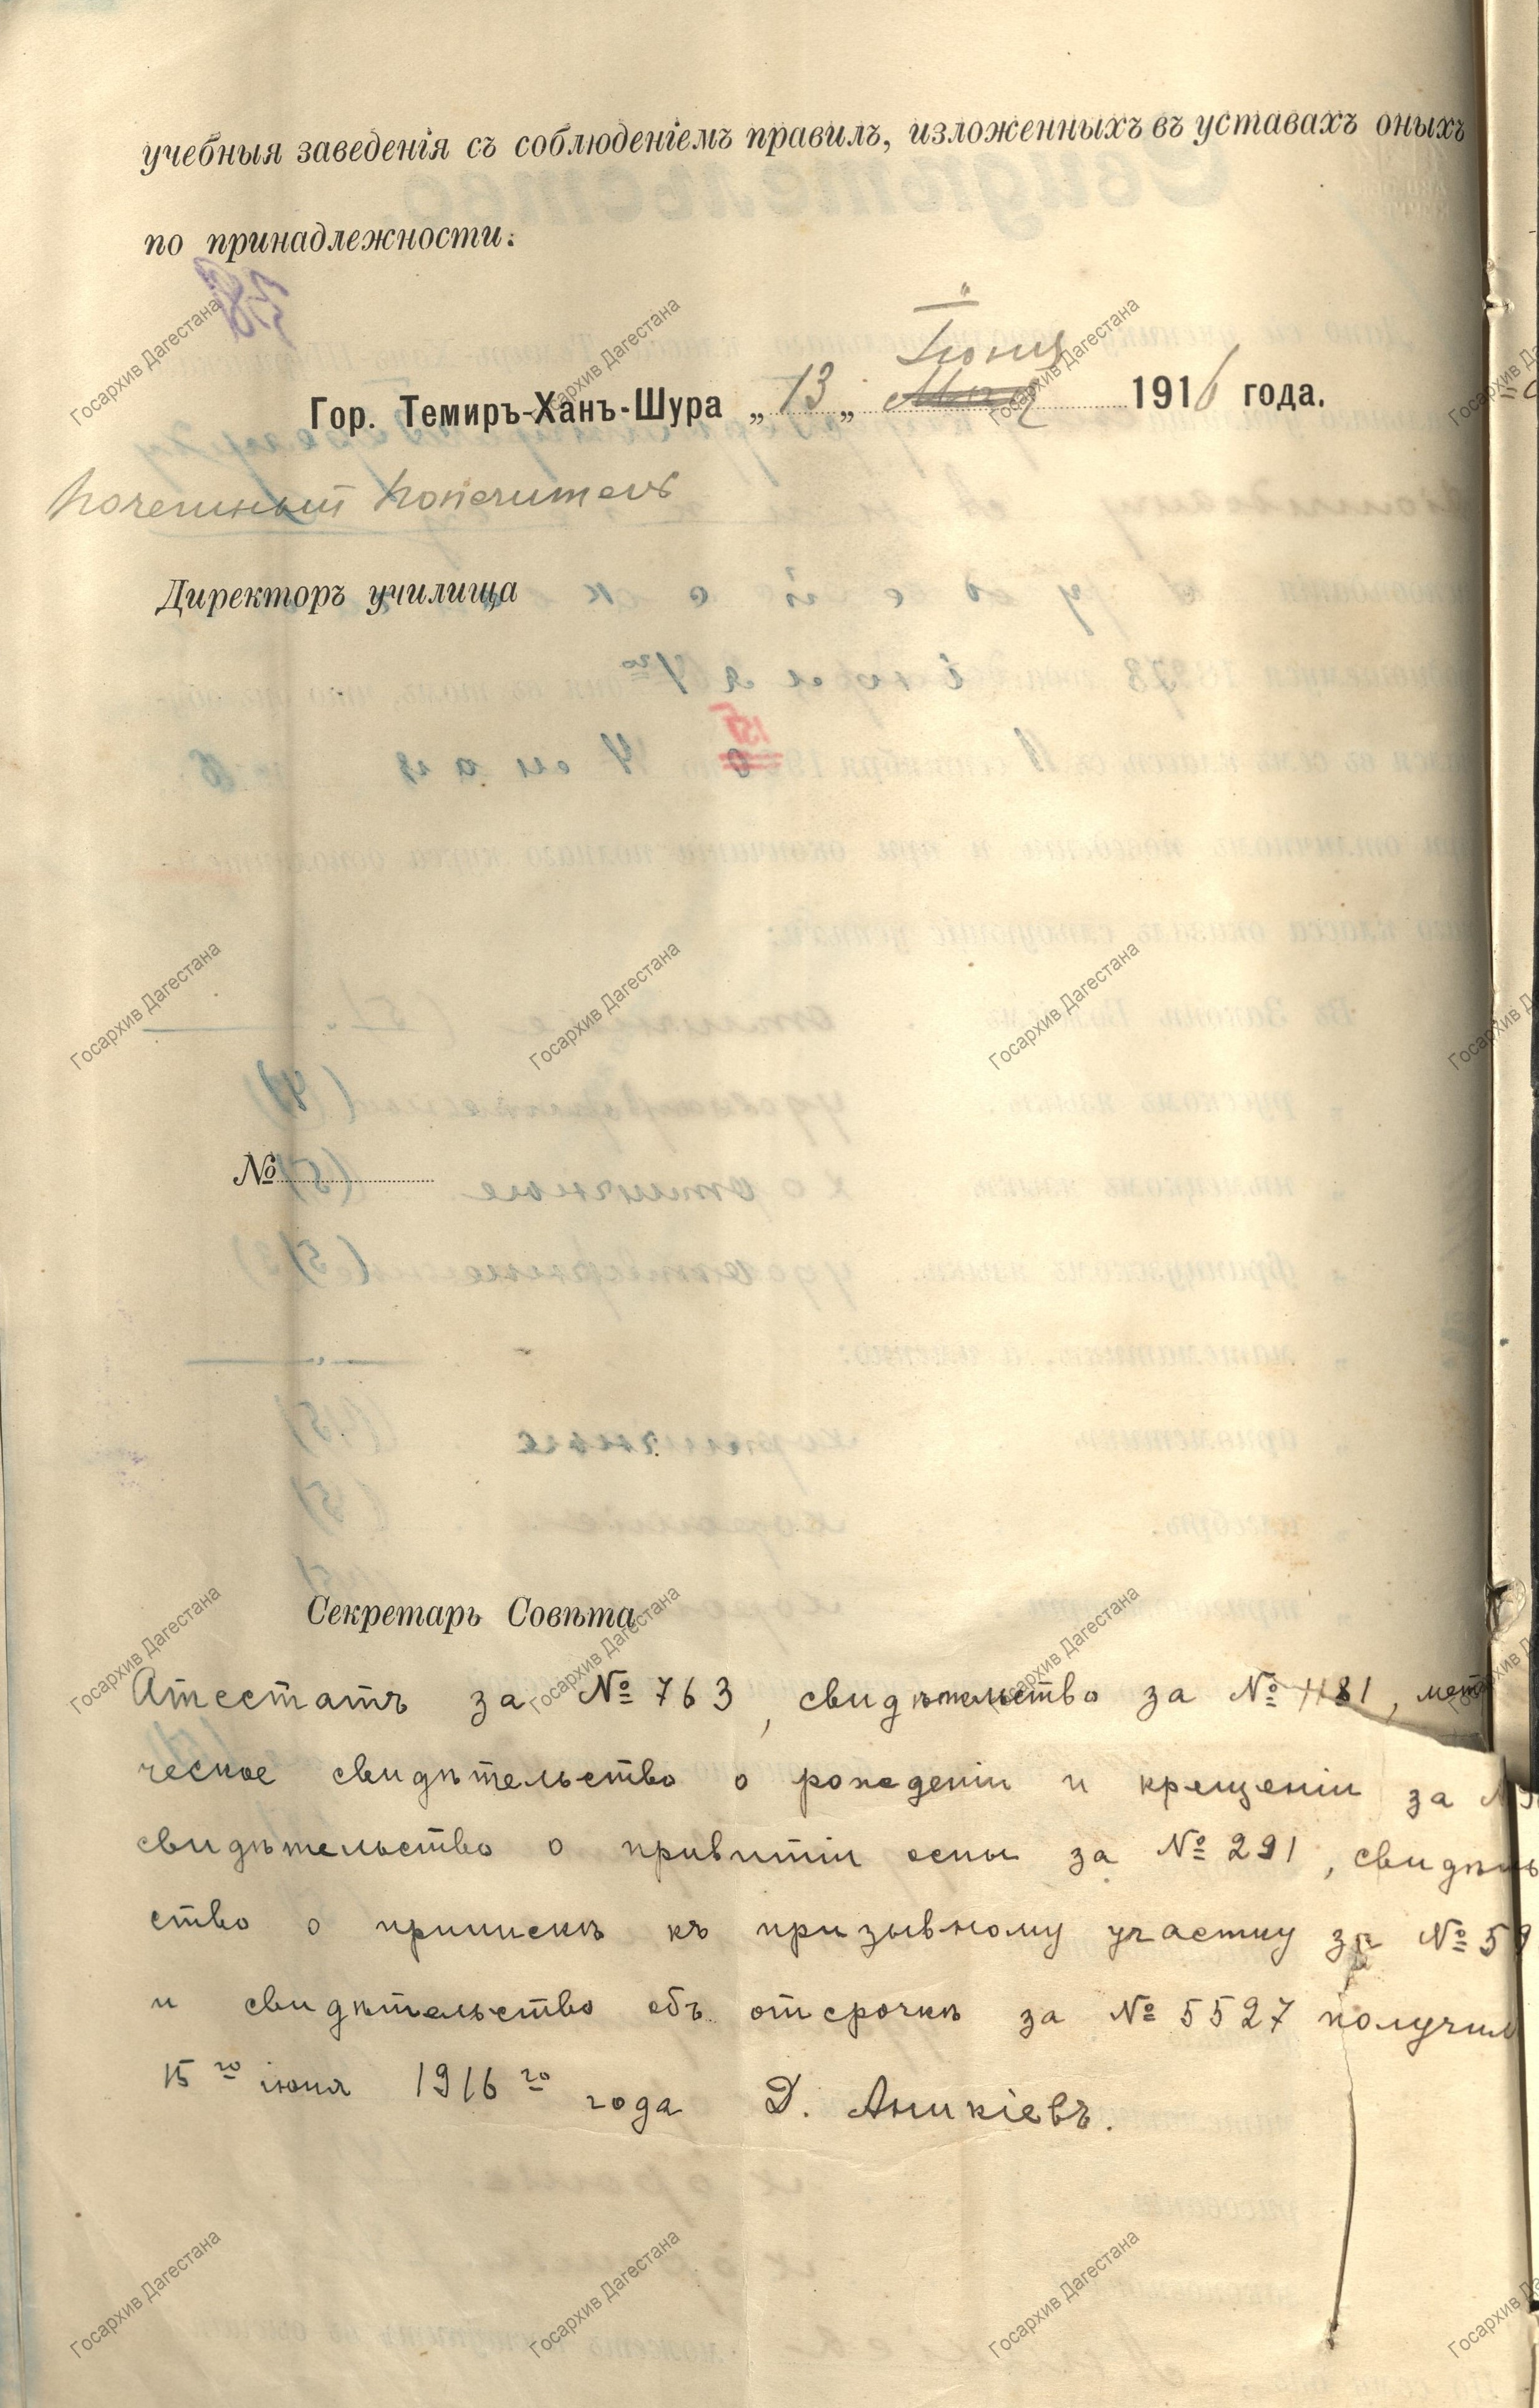 учебныя заведенія съ соблюденіемъ правилъ, изложенныхъ въ уставахъ оныхъ
по принадлежности.
Іюня
Гор. Темиръ-Ханъ-Шура „13„ Мая 1916 года.
Почетный Попечитель
Директоръ училища
№
Секретарь Совѣта
Аттестатъ за № 763, свидѣтельство за № 1181, мет
ческое свидѣтельство о рожденіи и крещеніи за №
свидѣтельство о привитіи оспы за № 291, свидѣтель
ство о припискѣ къ призывному участку за № 59
и свидѣтельство объ отсрочкѣ за № 5527 получил
15го іюня 1916го года Д. Аникіевъ.
Госархив Дагестана